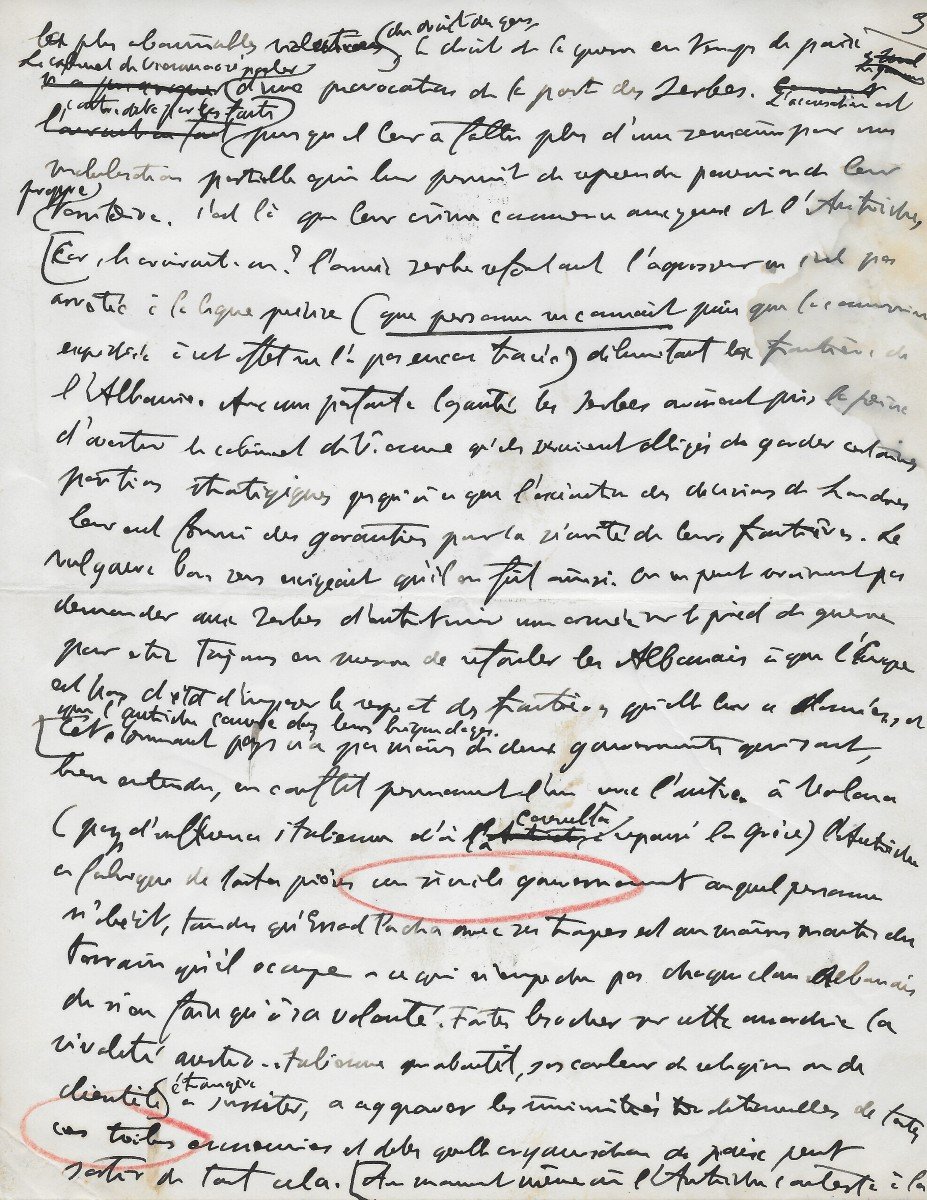 3
les plus abominables violations (du droit des gens
le droit de la guerre en temps de paix
Le cabinet de Vienne a osé parler
d'une provocation de la part des Serbes. L'accusation est
contredite par les faits
puisqu'il leur a fallu plus d'une semaine pour une
mobilisation partielle qui leur permit de reprendre possession de leur
propre
territoire. C'est là que leur crime commence aux yeux de l'Autriche,
[Car, le croirait-on? l'armée serbe refoulant l'agresseur ne s'est pas
arrêtée à la ligne précise (que personne ne connaît puisque la commission
à cet effet ne l'a pas encore tracée) délimitant les frontières de
l'Albanie. Avec une parfaite loyauté les Serbes avaient pris la peine
d'avertir le cabinet de Vienne qu'ils seraient obligés de garder certaines
positions stratégiques jusqu'à ce que l'exécution des décisions de Londres
leur eut fourni des garanties pour la sécurité de leurs frontières. Le
vulgaire bon sens exigeait qu'il en fût ainsi. On ne peut vraiment pas
demander aux Serbes d'entretenir une armée sur le pied de guerre
pour être toujours en mesure de refouler les Albanais à que l'Europe
est hors d'état d'imposer le respect des frontières qu'elle leur a données, et
que l'Autriche couvre dans leurs brigandages.
[Cet étonnant pays n'a pas moins de deux gouvernements qui sont,
bien entendu, en conflit permanent l'un avec l'autre. à Valona
(pays d'influence italienne d'où la Consulta a repoussé la Grèce) l'Autriche
a fabriqué de toutes pièces un simili gouvernement auquel personne
n'obéit, tandis qu'Essad Pacha avec ses troupes est au moins maître du
terrain qu'il occupe - ce qui n'empêche pas chaque clan albanais
de n'en faire qu'à sa volonté. Faites brocher sur cette anarchie la
rivalité austro-italienne qui aboutit, sous couleur de religion ou de
clientèle (étrangère) à susciter, à aggraver les inimitiés de toutes
ces tribus ennemies et dites quelle organisation de paix peut
sortir de tout cela. [Au moment même où l'Autriche conteste à la